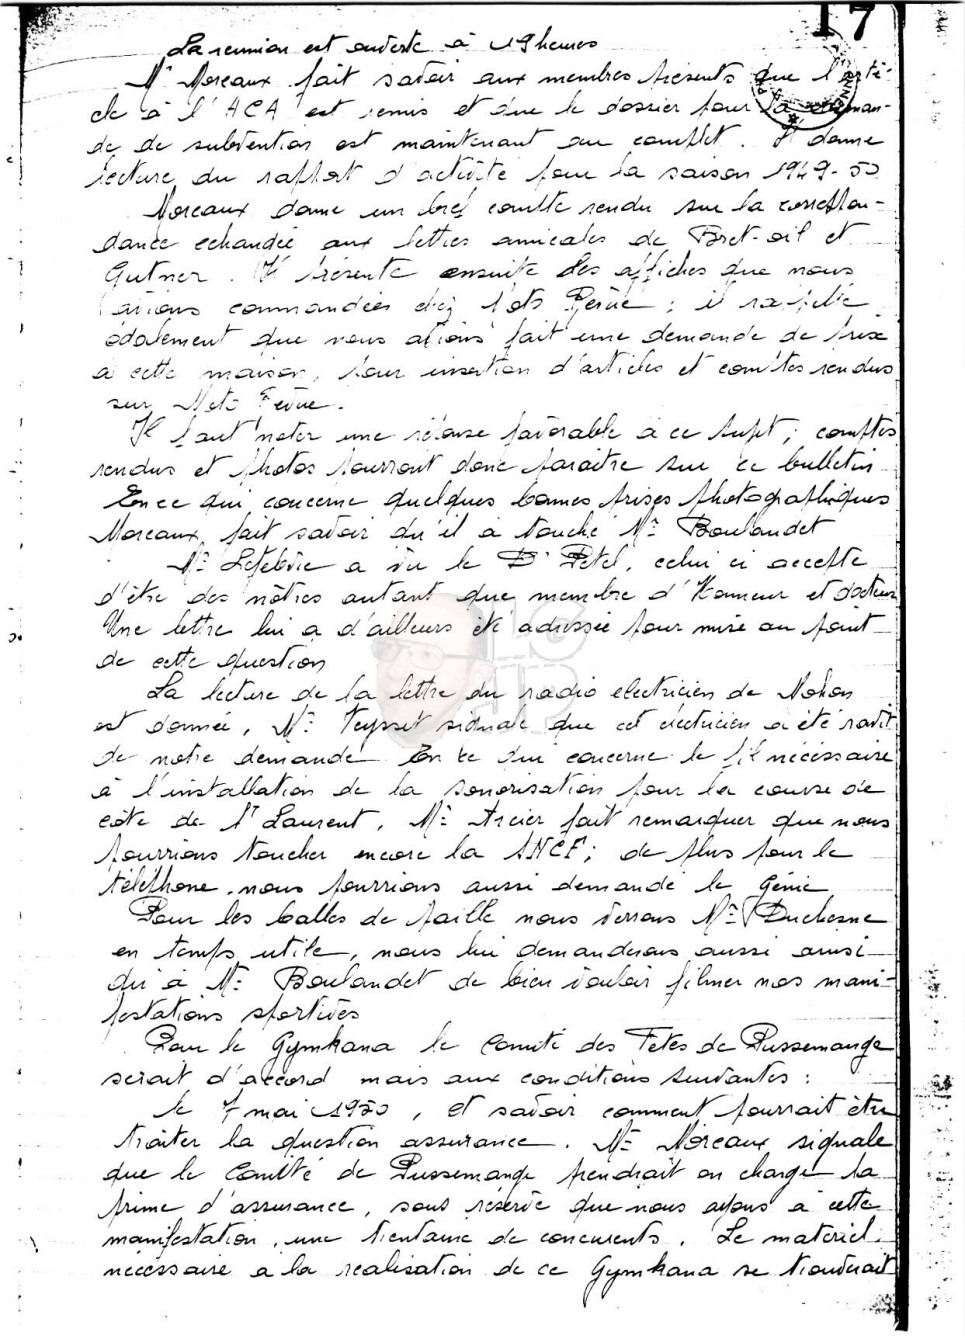 17
La réunion est ouverte à 19 heures
Mr Moreaux fait savoir aux membres présents que l'arti-
cle à l'ACA est remis et que le dossier pour la deman-
de de subvention est maintenant au complet. Il donne
lecture du rapport d'activité pour la saison 1949-50
Moreaux donne un bref compte rendu sur la correspon-
dance echangée aux lettres amicales de Bret-oil et
Gutner. Il présente ensuite les affiches que nous
avions commandées chez l'ets ; il rappelle
également que nous avions fait une demande de prix
à cette maison, pour insertion d'articles et comptes rendus
sur Moto Revue.
Il faut noter une réponse favorable à ce sujet; comptes
rendus et photos pourront donc paraitre sur ce bulletin
En ce qui concerne quelques bonnes prises photographiques
Moreaux fait savoir qu'il a touché Mr Boulandet
Mr Lefebvre a vu le Dr Petel, celui ci accepte
d'être des nôtres autant que membre d'Honneur et docteur
Une lettre lui a d'ailleurs été adressée pour mise au point
de cette question
La lecture de la lettre du radio electricien de Mohon
est donnée, Mr Teyssit signale que cet électricien a été ravit
de notre demande En ce qui concerne le fil nécéssaire
à l'installation de la sonorisation pour la course de
côte de St Laurent, Mr Arcier fait remarquer que nous
pourrions toucher encore la SNCF; de plus pour le
téléphone, nous pourrions aussi demandé le Génie
Pour les balles de paille nous verrons Mr Duchesne
en temps utile, nous lui demanderons aussi ainsi
qu'à Mr Boulandet de bien vouloir filmer nos mani-
festations sportives
Pour le Gymkana le Comité des Fêtes de Pussemange
serait d'accord mais aux conditions suivantes :
le 7 mai 1950, et savoir comment pourrait être
traiter la question assurance. Mr Moreaux signale
que le Comité de Pussemange prendrait en charge la
prime d'assurance, sous réserve que nous ayons à cette
manifestation, une trentaine de concurents. Le matériel
nécessaire a la realisation de ce Gymkana se trouverait